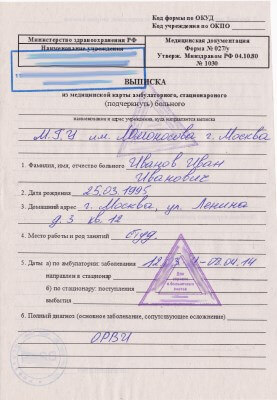 Код формы по ОКУД
Код учреждения по ОКПО
Министерство здравоохранения РФ
Наименование учреждения
Медицинская документация
Форма № 027/у
Утверж. Минздравом РФ 04.10.80
№ 1030
ВЫПИСКА
из медицинской карты амбулаторного, стационарного
(подчеркнуть) больного
наименование и адрес учреждения, куда направляется выписка
МГУ им. Ломоносова г. Москва
1. Фамилия, имя, отчество больного Иванов Иван
Иванович
2. Дата рождения 25.03.1995
3. Домашний адрес г. Москва, ул. Ленина
д. 3 кв. 12
4. Место работы и род занятий студ.
5. Даты: а) по амбулатории: заболевания
направлен в стационар
б) по стационару: поступления
выбытия
Для
справок
и больничных
листов
6. Полный диагноз (основное заболевание, сопутствующее осложнение)
ОРВИ